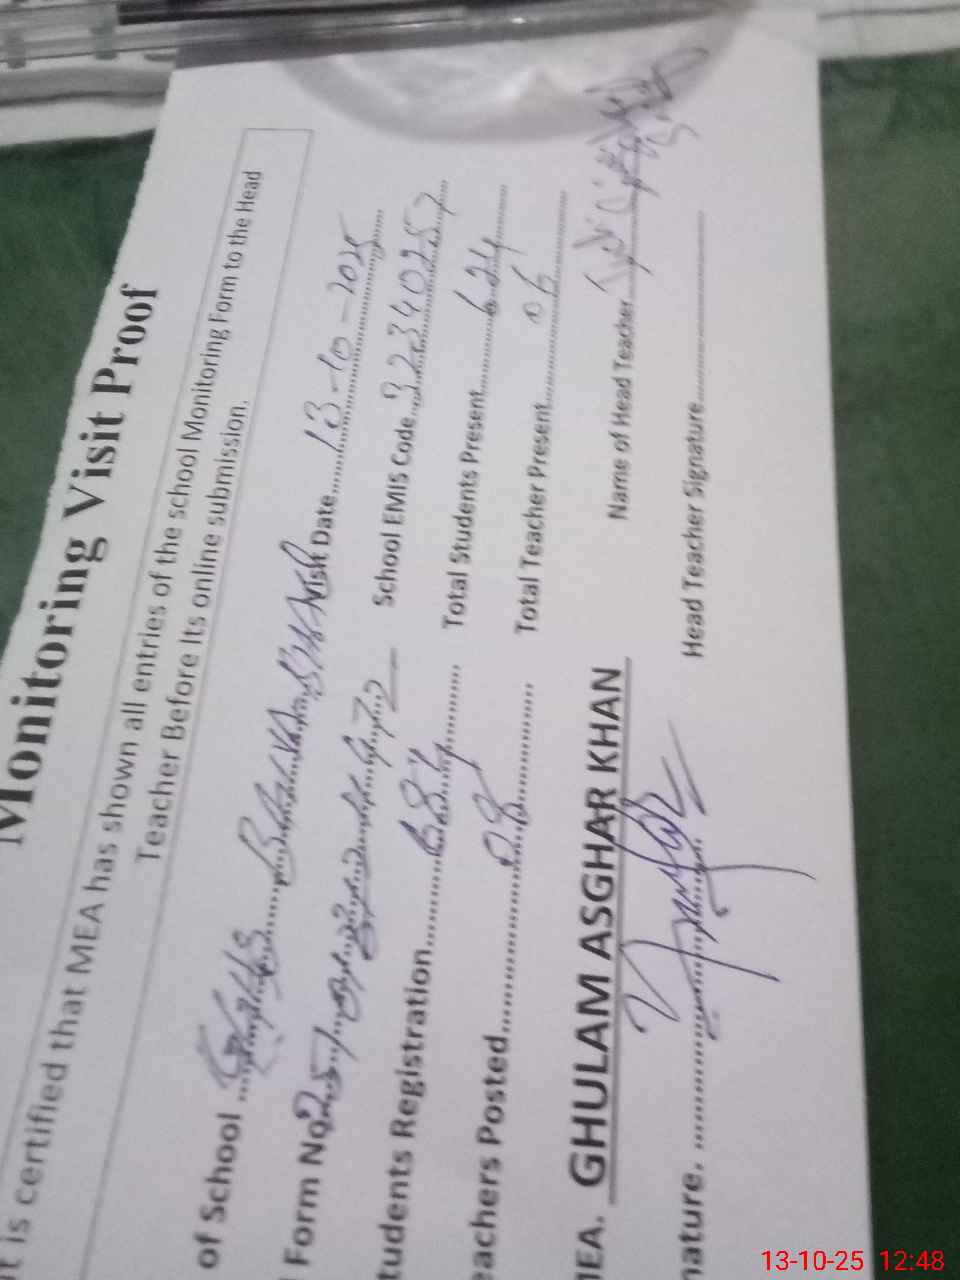 Monitoring Visit Proof
t is certified that MEA has shown all entries of the school Monitoring Form to the Head
Teacher Before Its online submission.
of School Visit Date 13-10-2025
Form No School EMIS Code 32340257
tudents Registration Total Students Present 624
eachers Posted 08 Total Teacher Present 06
MEA. GHULAM ASGHAR KHAN Name of Head Teacher
nature. Head Teacher Signature
13-10-25 12:48